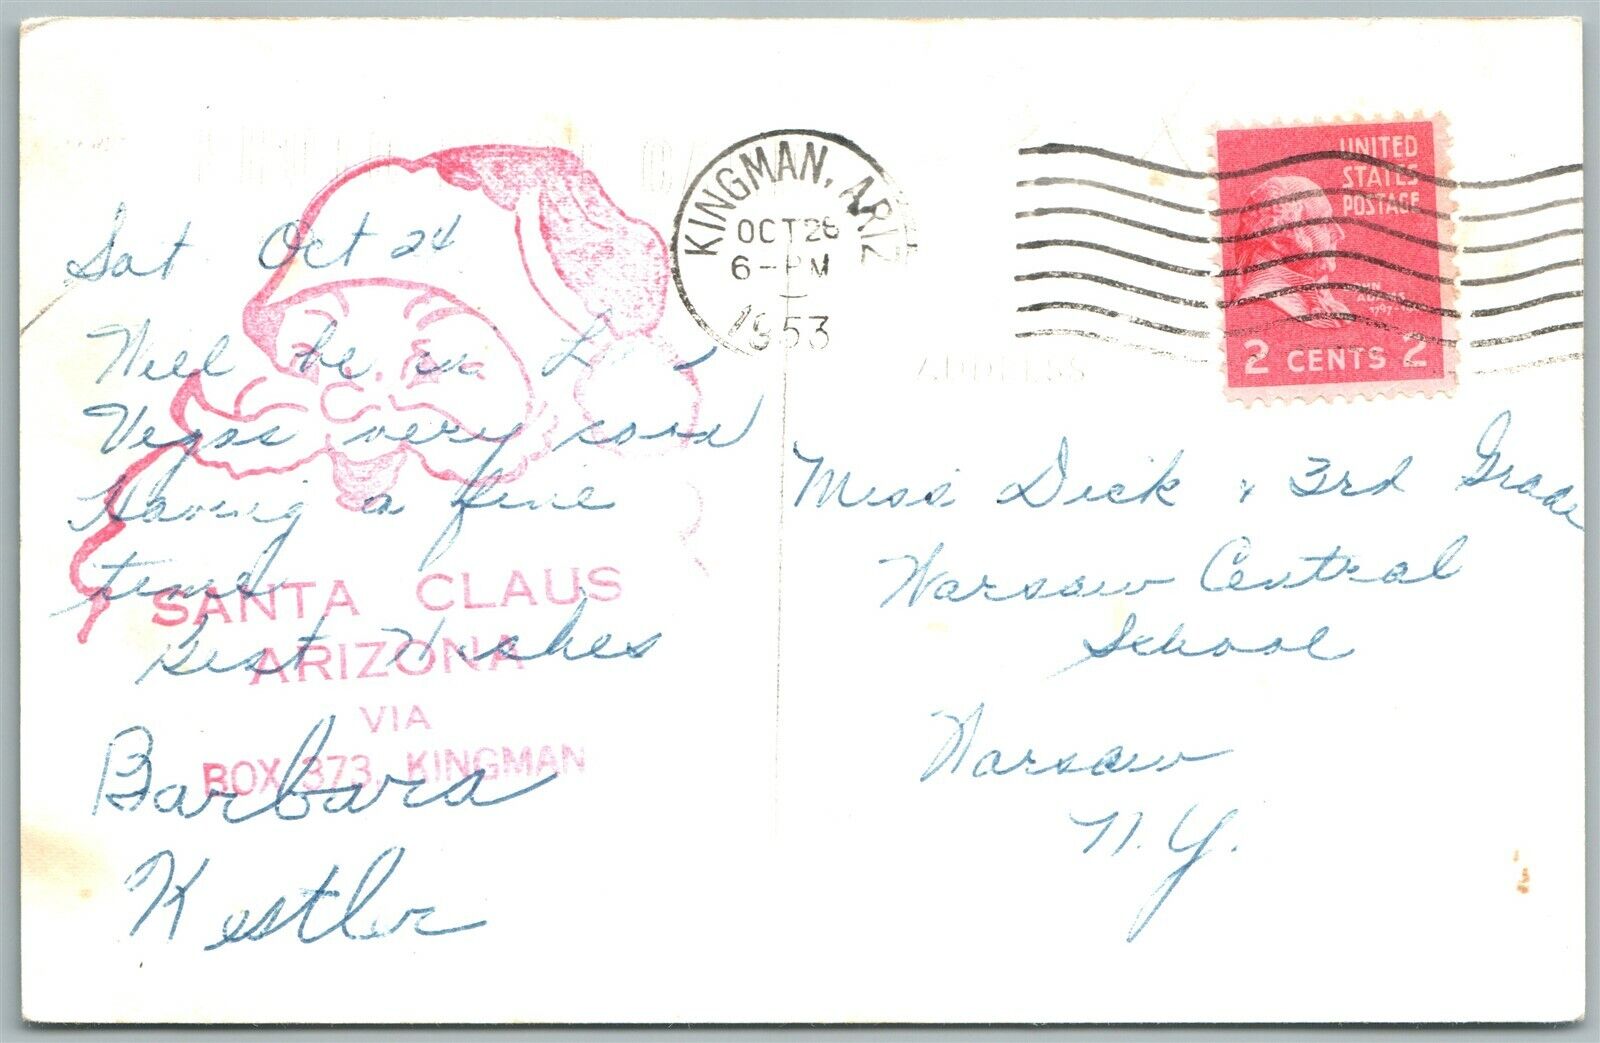 Sat Oct 24
Will be in Las
Vegas very soon
Having a fine
time
Best Wishes
Barbara
Kestler
SANTA CLAUS
ARIZONA
VIA
BOX 373, KINGMAN
KINGMAN, ARIZ
OCT 26
6-PM
1953
UNITED
STATES
POSTAGE
2 CENTS 2
ADDRESS
Miss Dick & 3rd Grade
Warsaw Central
School
Warsaw
N.Y.